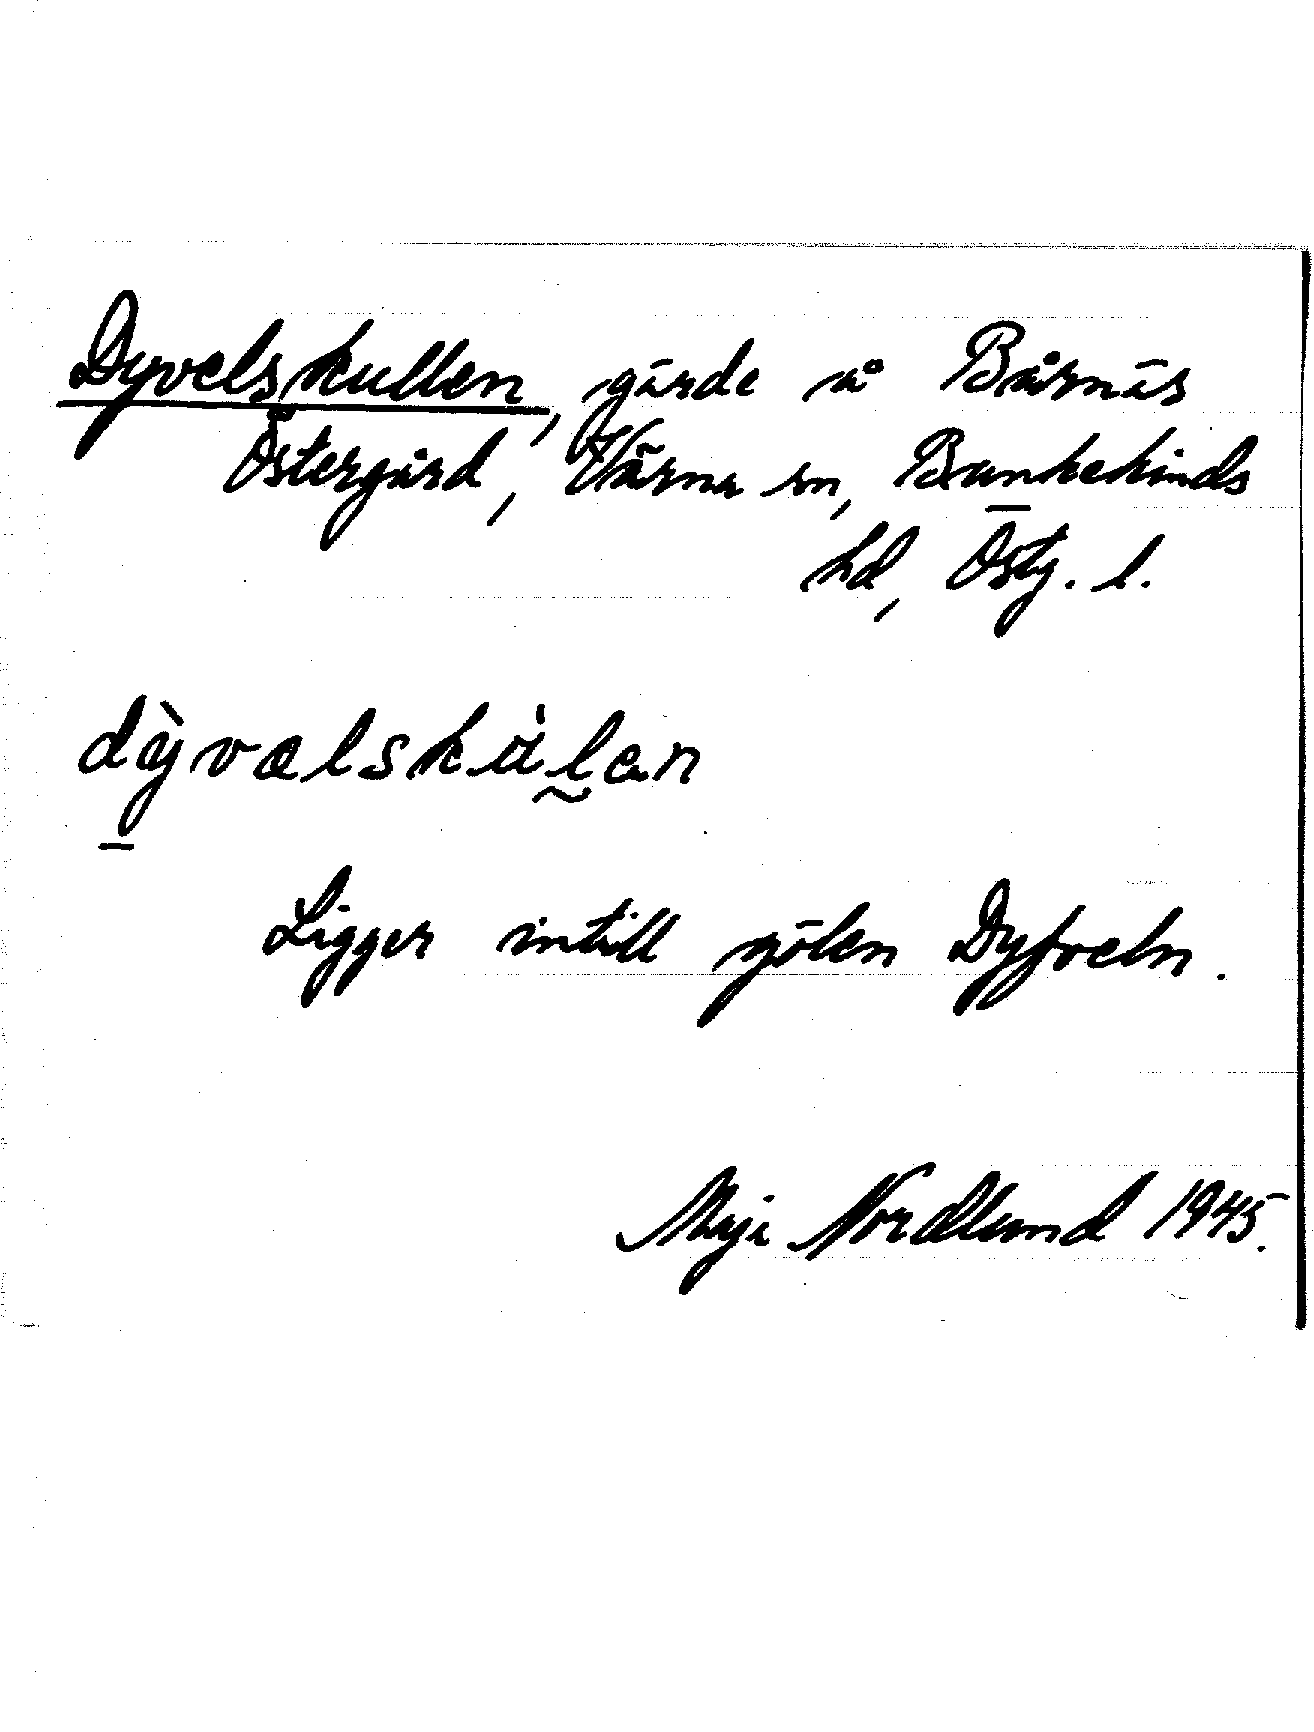 Dyvelskullen, gärde å Bårnäs
Östergård, Värna sn, Bankekinds
hd, Östg. l.
Ligger intill gölen Dyfveln.
Maja Nordlund 1945.